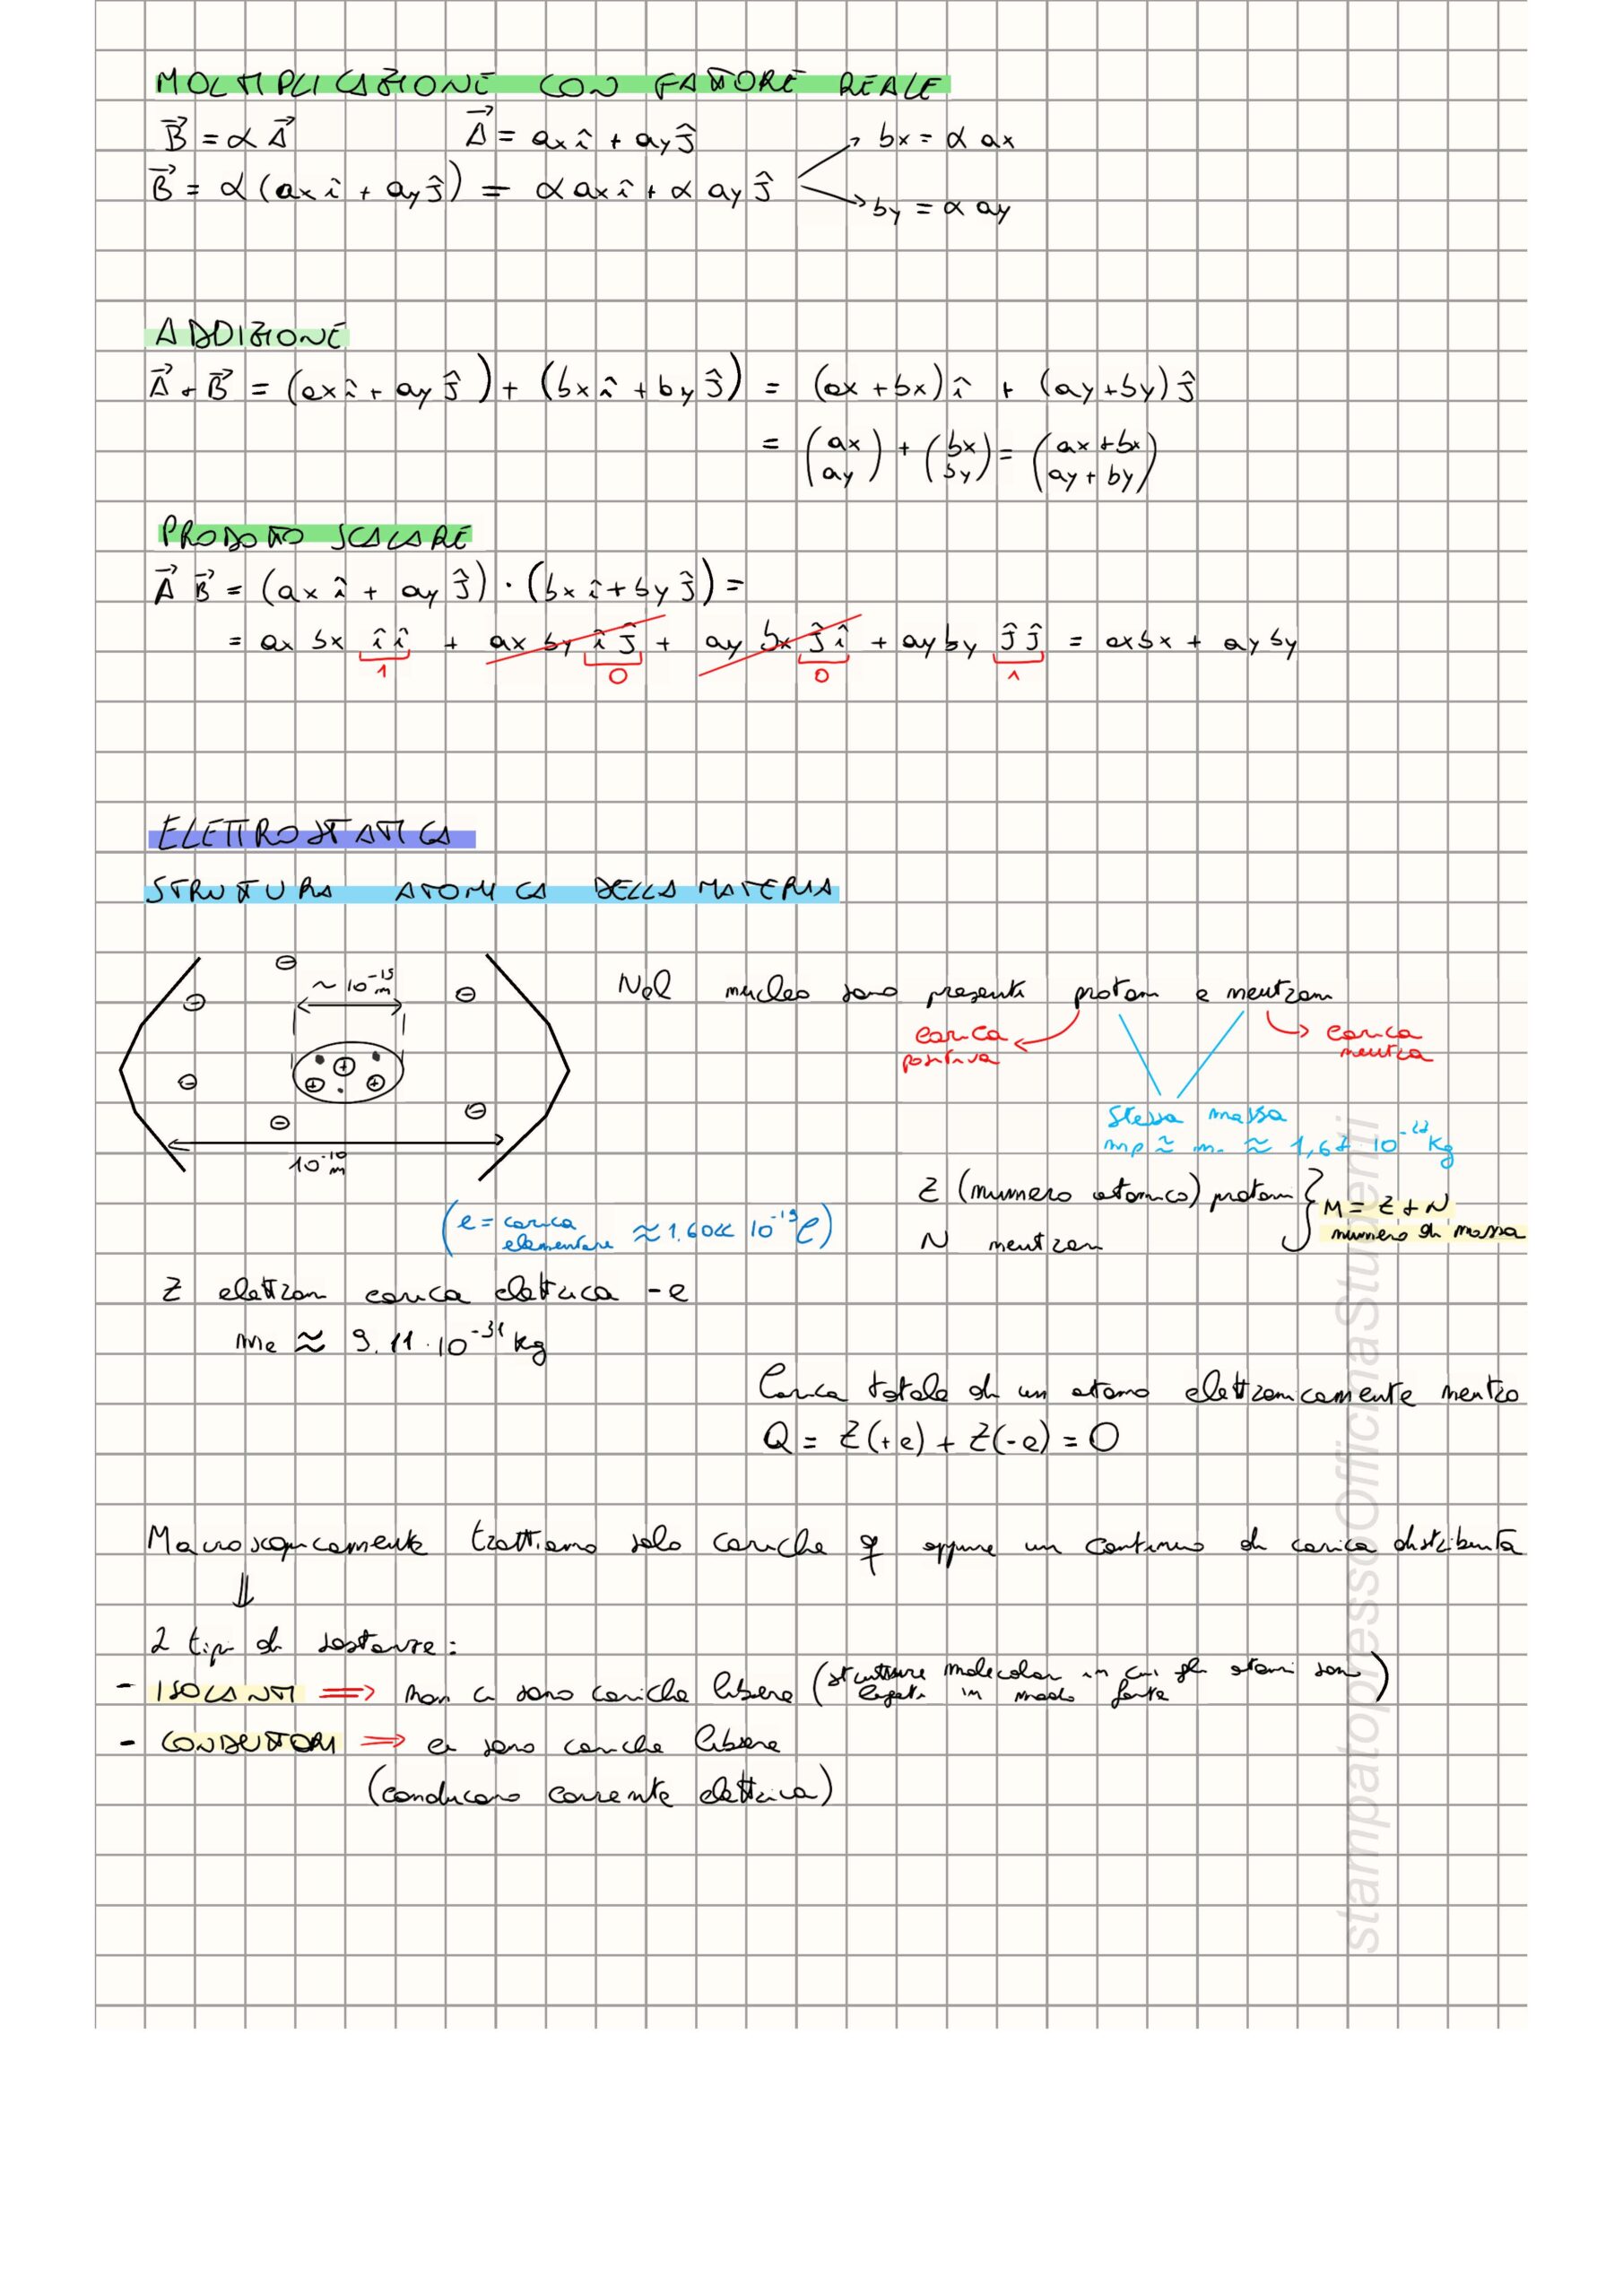 MOLTIPLICAZIONE CON FATTORE REALE
B⃗ = α A⃗    A⃗ = ax î + ay ĵ    bx = α ax
B⃗ = α (ax î + ay ĵ) = α ax î + α ay ĵ    by = α ay
ADDIZIONE
A⃗ + B⃗ = (ax î + ay ĵ) + (bx î + by ĵ) = (ax + bx) î + (ay + by) ĵ
= (ax ay) + (bx by) = (ax + bx ay + by)
PRODOTTO SCALARE
A⃗ B⃗ = (ax î + ay ĵ) · (bx î + by ĵ) =
= ax bx î î + ax by î ĵ + ay bx ĵ î + ay by ĵ ĵ = axbx + ay by
1 0 0 1
ELETTROSTATICA
STRUTTURA ATOMICA DELLA MATERIA
~ 10⁻¹⁵ m
Nel nucleo sono presenti protoni e neutroni
carica positiva
carica neutra
stessa massa
mp ≈ mn ≈ 1,67 · 10⁻²⁷ Kg
10⁻¹⁰ m
Z (numero atomico) protoni
N neutroni
M = Z + N
numero di massa
(e = carica elementare ≈ 10⁻¹⁹ C)
Z elettroni carica elettrica -e
me ≈ 9.11 · 10⁻³¹ kg
Carica totale di un atomo elettronicamente neutro
Q = Z(+e) + Z(-e) = 0
Macroscopicamente trattiamo solo cariche q oppure un continuo di carica distribuita
⇓
2 tipi di sostanze:
- ISOLANTI ⇒ non ci sono cariche libere (strutture molecolari in cui gli atomi sono legati in modo forte)
- CONDUTTORI ⇒ ci sono cariche libere
(conducono corrente elettrica)
stampatopressoOfficinaStudenti